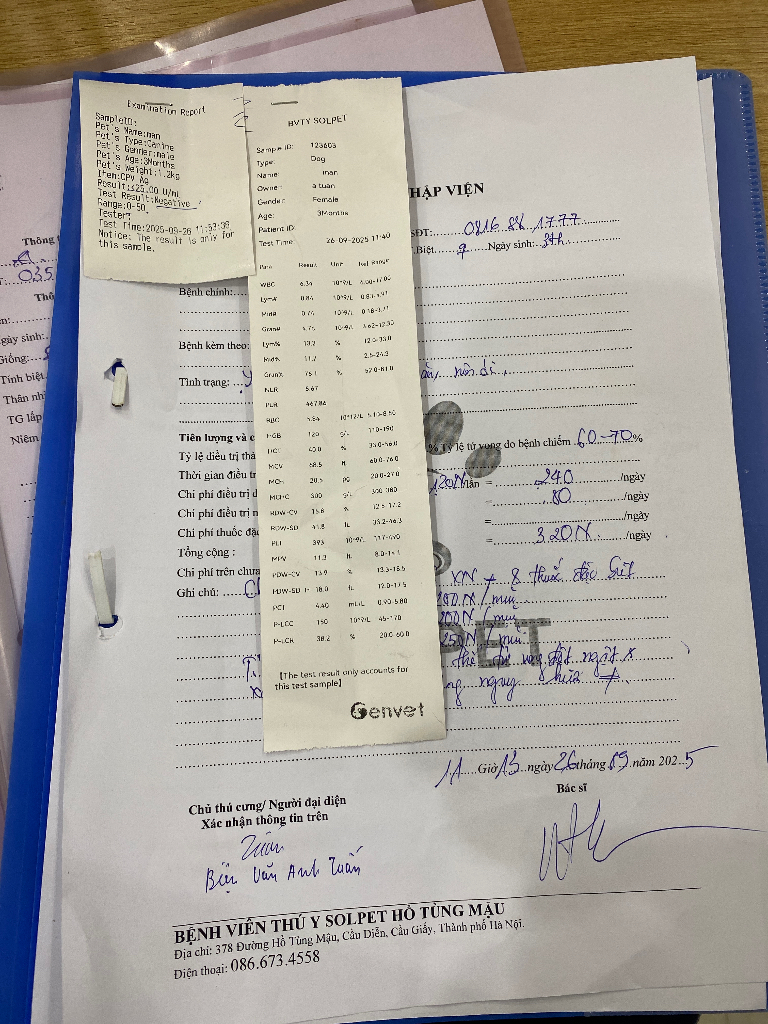 Examination Report
SampleID:
Pet's Name:man
Pet's Type:Canine
Pet's Gender:male
Pet's Age:3Months
Pet's Weight:1.2kg
Item:CPV Ag
Result:≤25.00 U/ml
Test Result:Negative
Range:0-50,
Tester:
Test Time:2025-09-26 11:53:39
Notice: The result is only for
this sample.
BVTY SOLPET
Sample ID: 123603
Type: Dog
Name: man
Owner: a tuan
Gender: Female
Age: 3Months
Patient ID:
Test Time: 26-09-2025 11:40
Para Result Unit Ref. Range
WBC 6.34 10^9/L 4.00-17.00
Lym# 0.84 10^9/L
Mid# 0.74 10^9/L
Gran# 4.76 10^9/L 3.62-12.30
Lym% 13.2 % 12.0-33.0
Mid% 11.7 % 2.5-24.3
Gran% 75.1 % 52.0-81.0
NLR 5.67
PLR 467.86
RBC 5.84 10^12/L 5.10-8.50
HGB 120 g/L 110-190
HCT 40.0 % 33.0-56.0
MCV 68.5 fL 60.0-76.0
MCH 20.5 pg 20.0-27.0
MCHC 300 g/L 300-380
RDW-CV 15.8 % 12.5-17.2
RDW-SD 41.8 fL 33.2-46.3
PLT 393 10^9/L 117-490
MPV 11.3 fL 8.0-14.1
PDW-CV 13.9 % 13.3-18.5
PDW-SD 18.0 fL 12.0-17.5
PCT 4.40 mL/L 0.90-5.80
P-LCC 150 10^9/L 45-170
P-LCR 38.2 % 20.0-60.0
[The test result only accounts for
this test sample]
Genvet
HẬP VIỆN
SĐT: 0816 88 1777
Biệt: Ngày sinh: 3th
Bệnh chính:
Bệnh kèm theo:
Tình trạng:
Tiên lượng và c
% Tỷ lệ tử vong do bệnh chiếm 60-70%
Tỷ lệ điều trị thà
Thời gian điều tr
120N/lần = 240 /ngày
Chi phí điều trị d
= 80 /ngày
Chi phí điều trị n
= /ngày
Chi phí thuốc đặ
= 320N /ngày
Tổng cộng :
Chi phí trên chưa
XN + 8 thuốc đặc
Ghi chú:
/ mũi
200N / mũi
250N / mũi
11 Giờ 13 ngày 26 tháng 09 năm 2025
Chủ thú cưng/ Người đại diện
Xác nhận thông tin trên
Bác sĩ
Tuấn
Văn Anh Tuấn
BỆNH VIỆN THÚ Y SOLPET HỒ TÙNG MẬU
Địa chỉ: 378 Đường Hồ Tùng Mậu, Cầu Diễn, Cầu Giấy, Thành phố Hà Nội.
Điện thoại: 086.673.4558
Thông
035
Thô
gày sinh:
Giống:
Tính biệt
Thân nh
TG lấp
Niêm